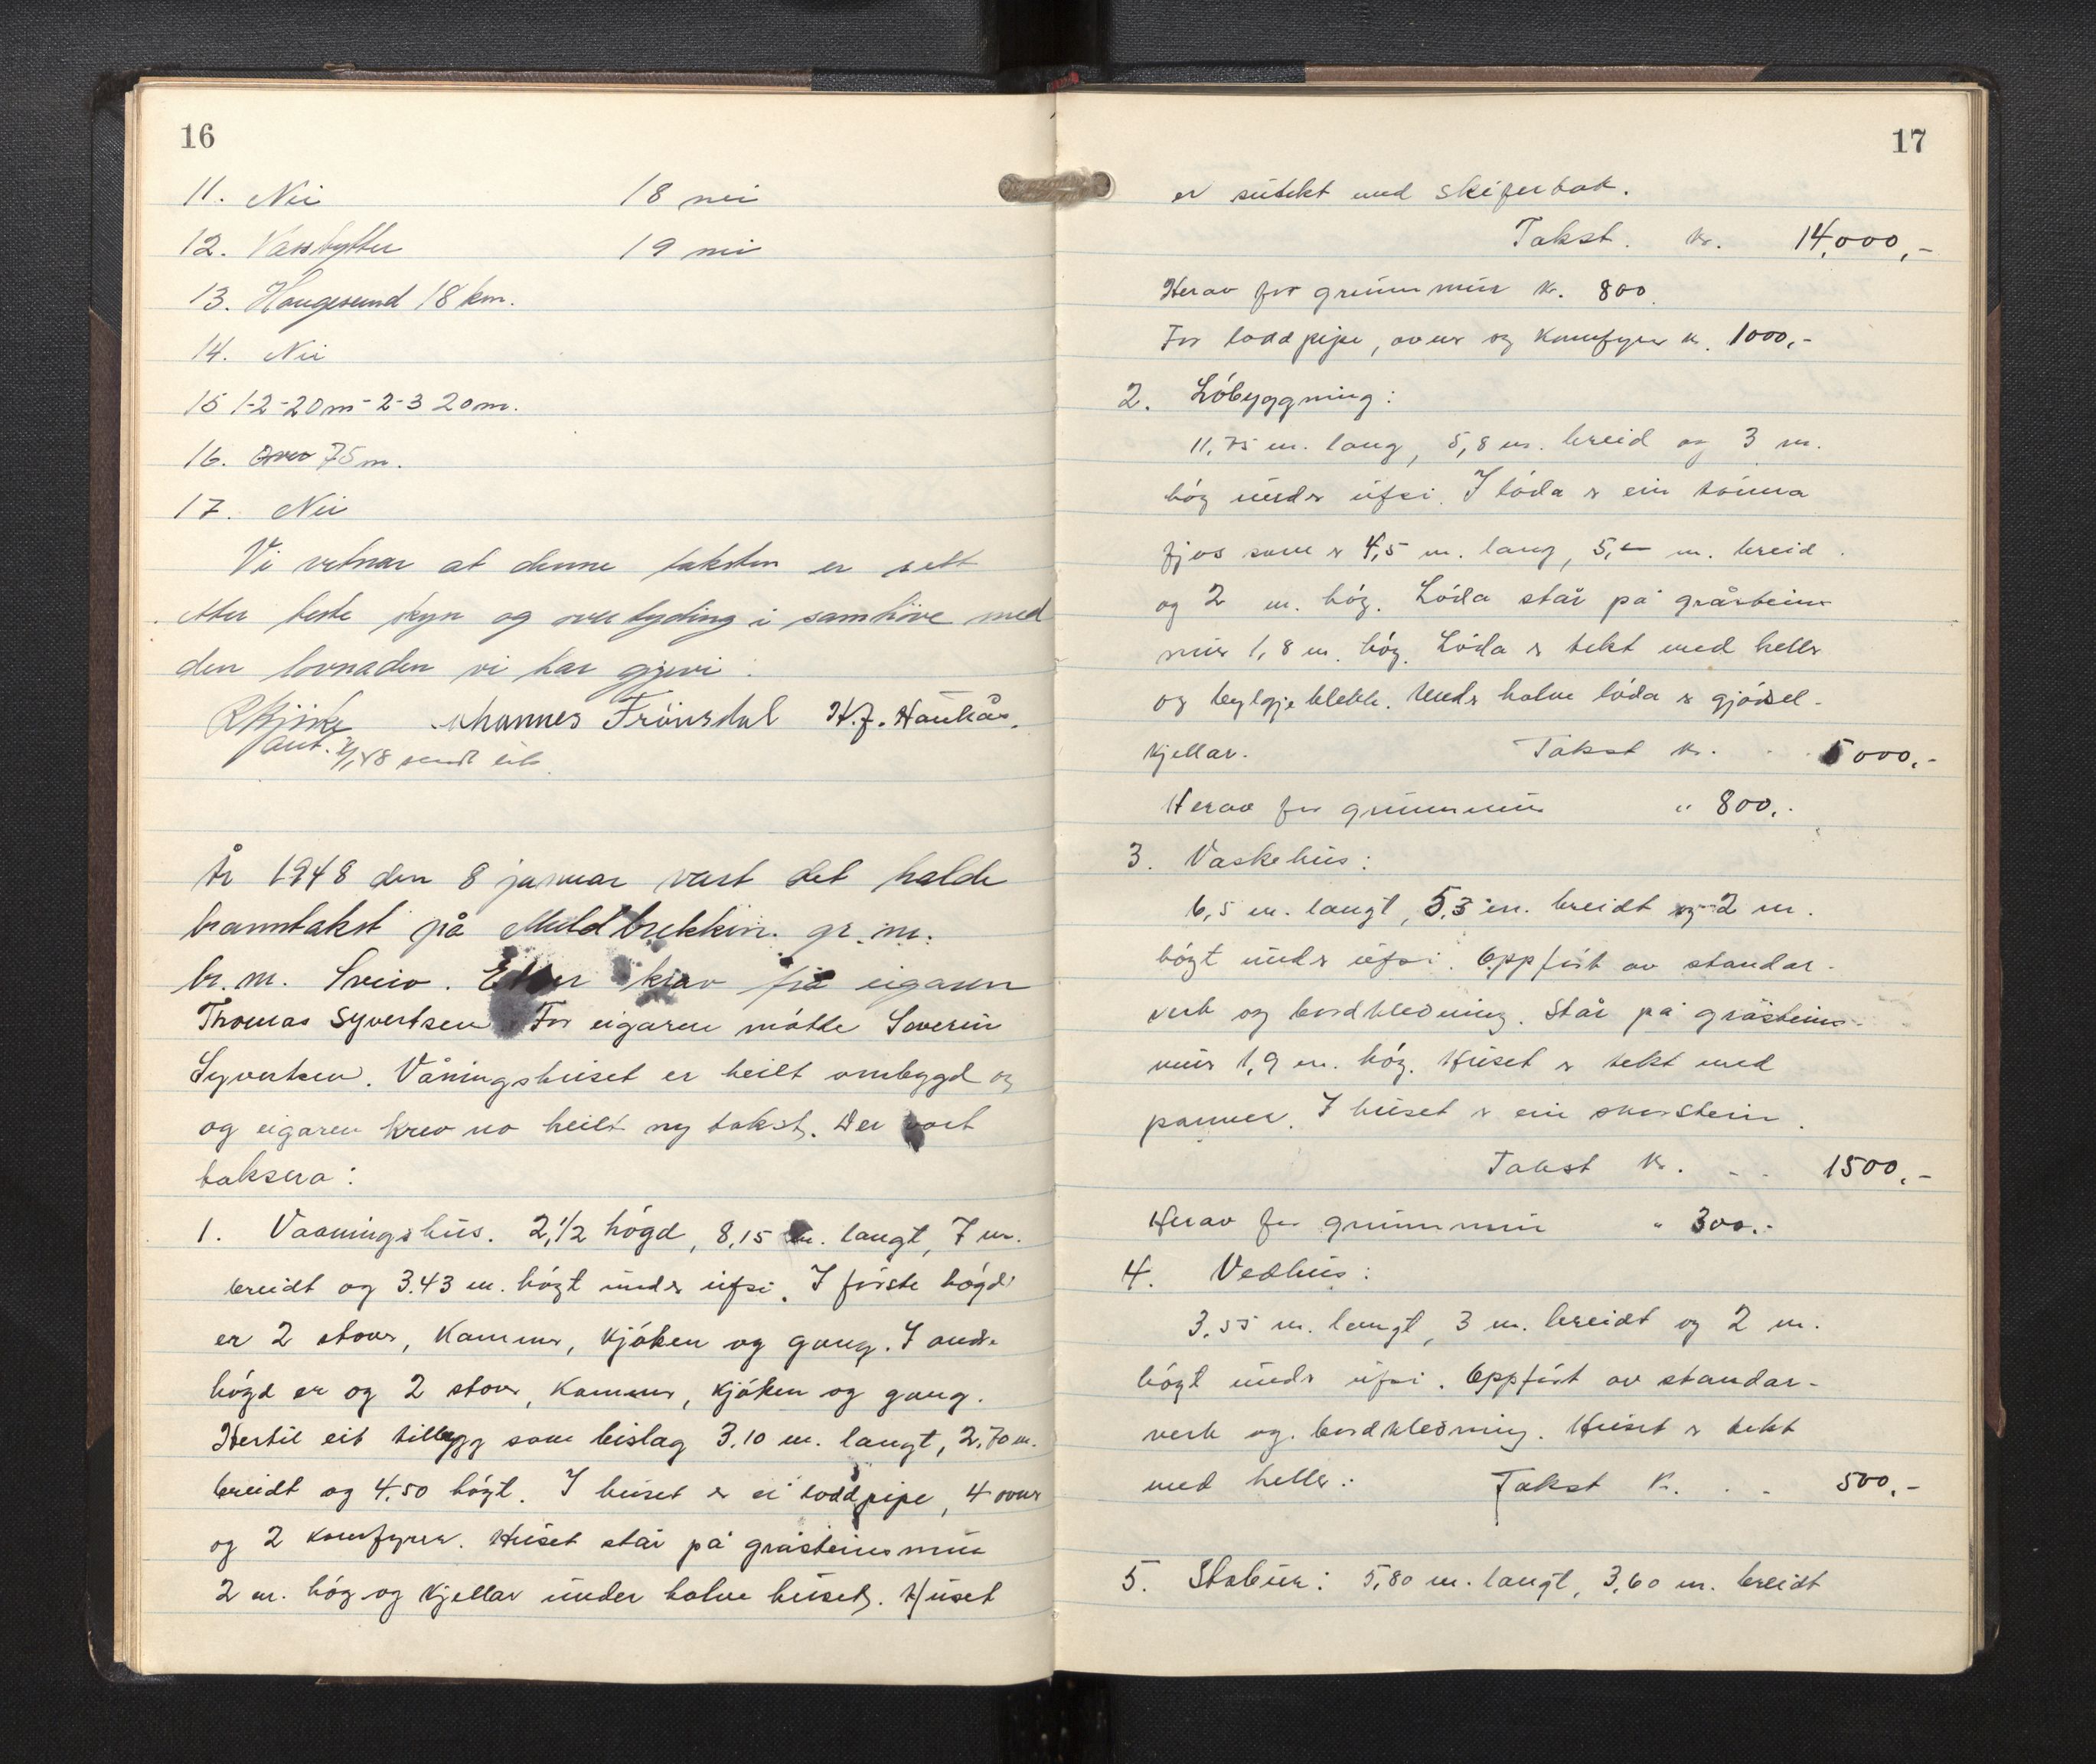 16
11. Nei 18 nei
12. Vassbytter 19 nei
13. Haugesund 18 km.
14. Nei
15 1-2-20m-2-3 20m.
16. 75 m.
17. Nei
Vi vitnar at denne taksten er sett
etter beste skyn og overtyding i samhøve med
den lovnaden vi har gjevi.
Johannes Frönsdal H.J. Haukås.
aut. 2/1 48 sendt
År 1948 den 8 januar vart det halde
branntakst på Meldbrekkin. gr. nr.
br. nr. Sveio. Etter krav frå eigaren
Thomas Syvertsen. For eigaren møtte Severin
Syvertsen. Våningshuset er heilt ombygd og
og eigaren krev no heilt ny takst. Der vart
taksera:
1. Vaaningshus. 2,1/2 högd, 8,15 m. langt, 7 m.
breidt og 3.43 m. högt under ufsi. I förste högd
er 2 stover, Kammer, Kjöken og gang. I andre
högd er og 2 stover, Kammer, Kjöken og gang.
Hertil eit tillegg som bislag 3,10 m. langt, 2,70 m.
breidt og 4,50 högt. I huset er ei loddpipe, 4 ovner
og 2 komfyrer. Huset står på gråsteinsmur
2 m. hög og Kjellar under halve huset. Huset
17
er sutekt med skifertak.
Takst. kr. 14,000,-
Herav for grunnmur kr. 800.
For loddpipe, ovner og Komfyrer kr. 1000,-
2. Löbyggning:
11,75 m. lang, 5,8 m. breid og 3 m.
hög under ufsi. I löda er ein tömra
fjos som er 4,5 m. lang, 5,- m. breid
og 2 m. hög. Löda står på gråsteins
mur 1,8 m. hög. Löda er tekt med heller
og bylgjeblekk. Under halve löda er gjödsel-
Kjellar. Takst kr. . . 5000.-
Herav for grunnmur " 800.-
3. Vaskehus:
6,5 m. langt, 5,3 m. breidt og 2 m.
högt under ufsi. Oppfört av standar-
verk og bordkledning. Står på gråsteins-
mur 1,9 m. hög. Huset er tekt med
panner. I huset er ein skorstein.
Takst kr. - . 1500.-
Herav for grunnmur " 300.-
4. Vedhus:
3,55 m. langt, 3 m. breidt og 2 m.
högt under ufsi. Oppfört av standar-
verk og bordkledning. Huset er tekt
med heller. Takst kr. . . 500.-
5. Stabur: 5,80 m. langt, 3,60 m. breidt